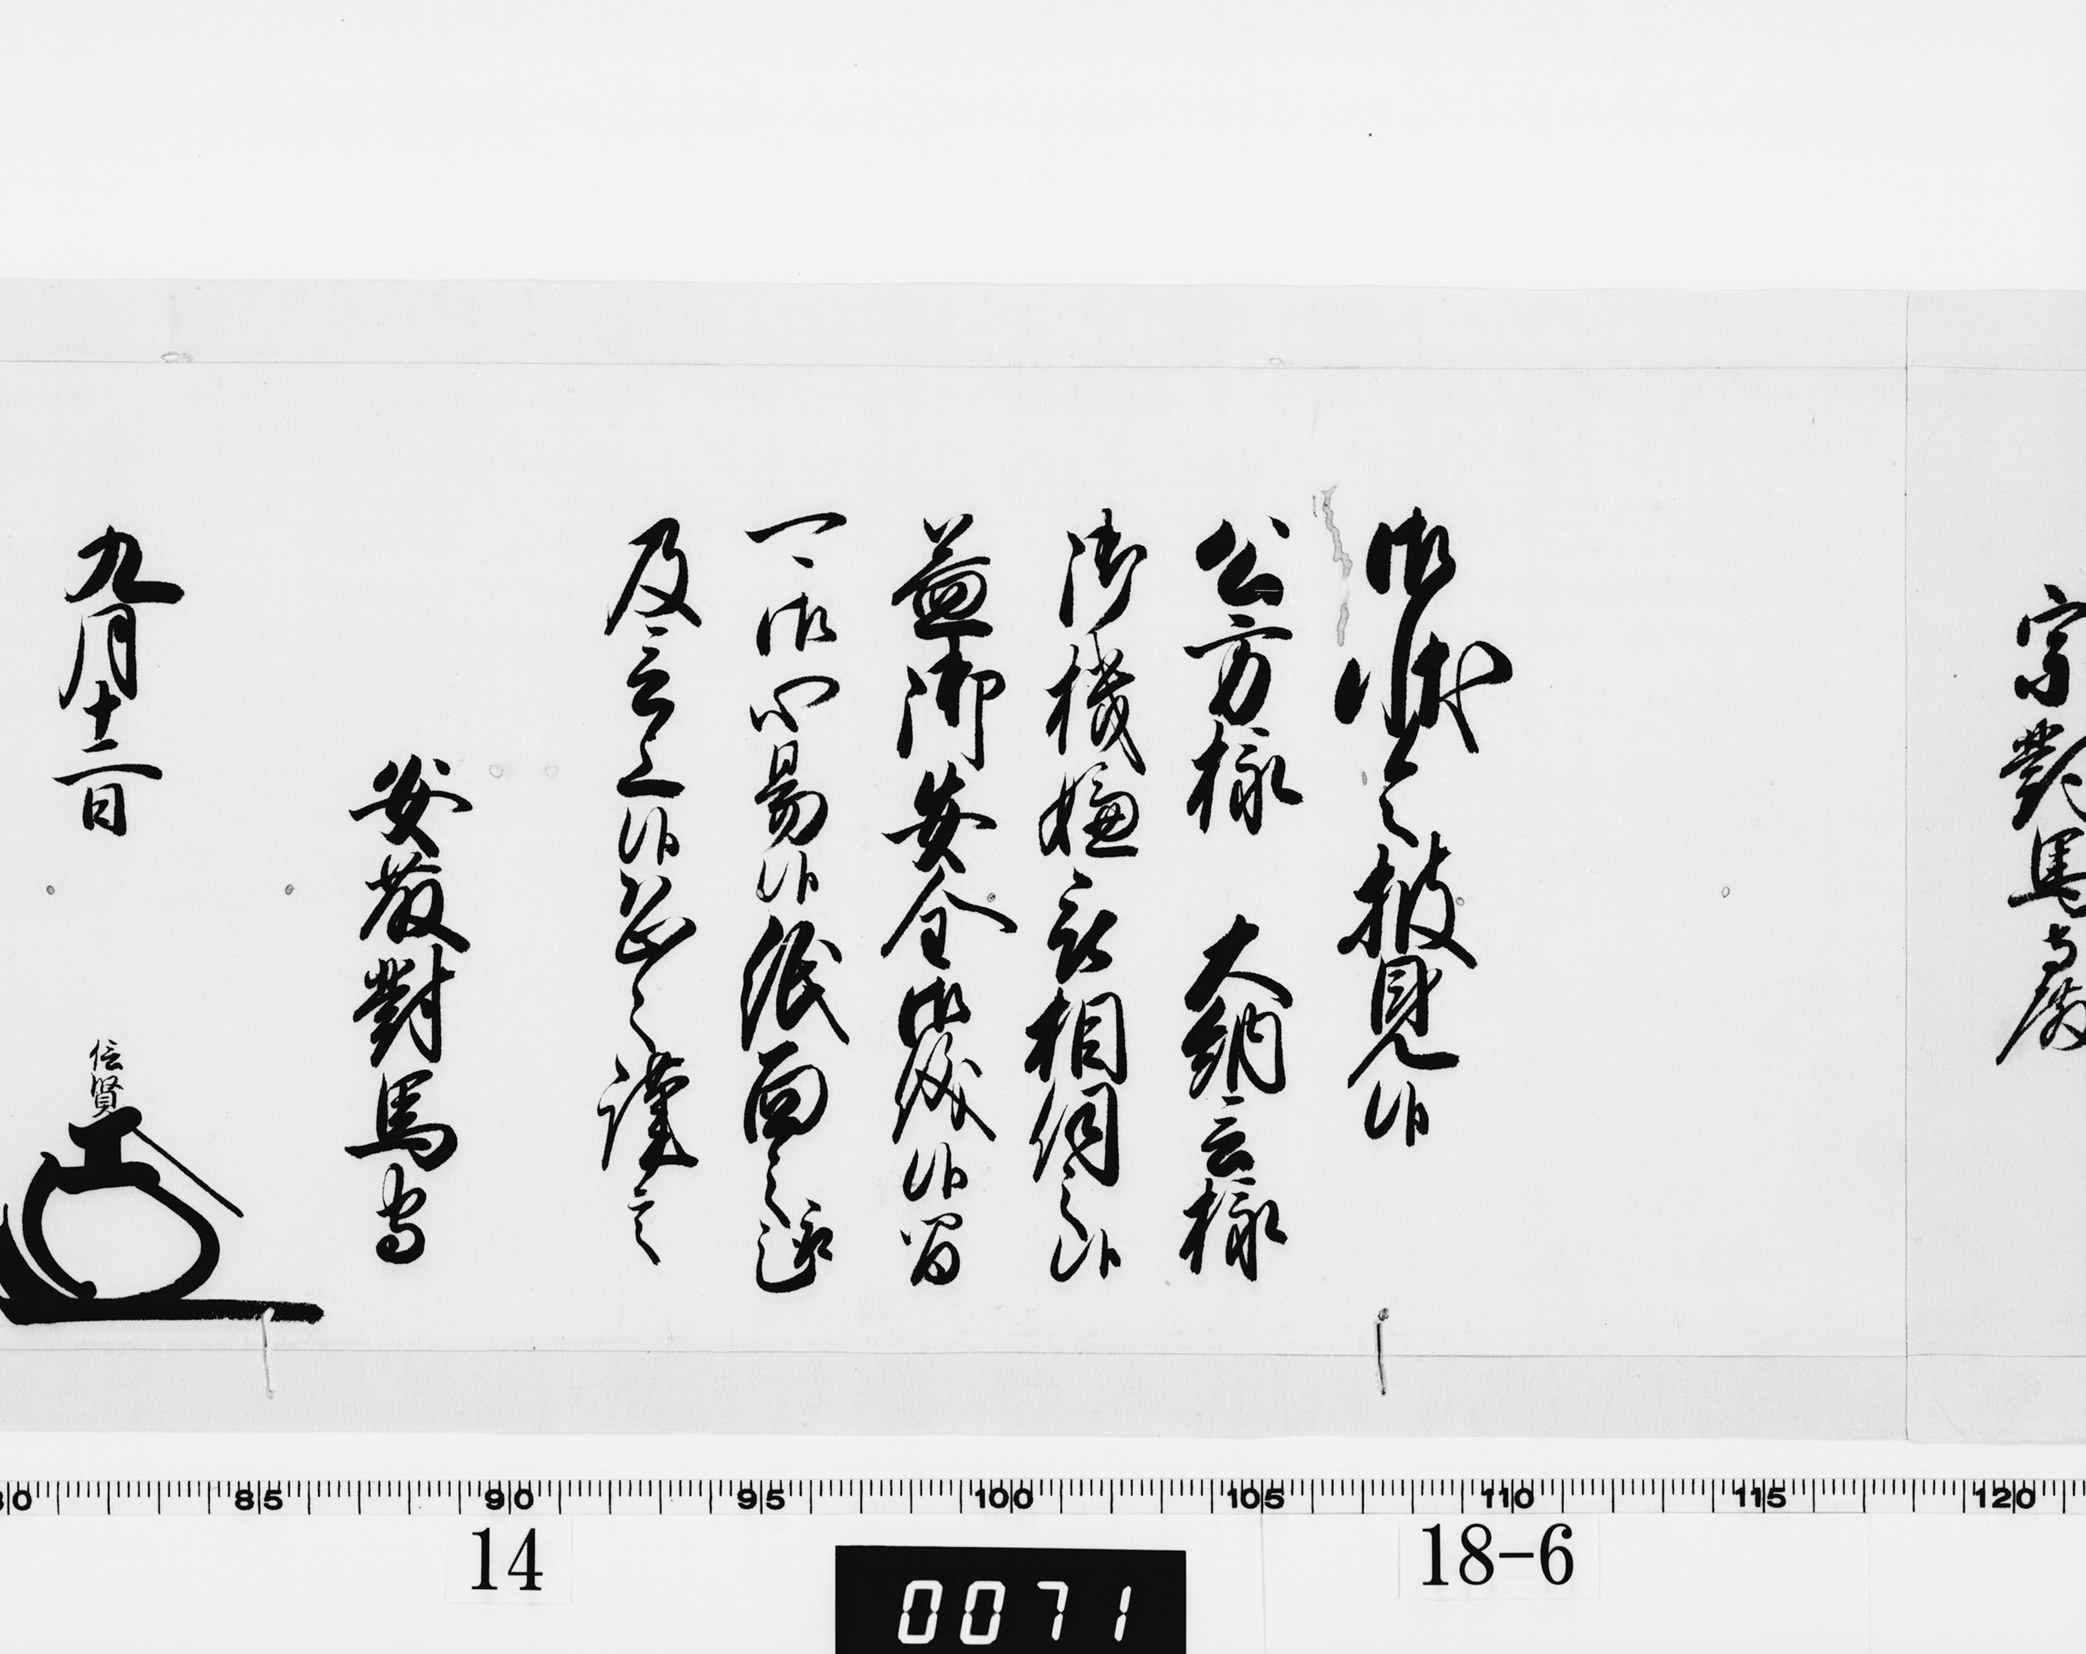 宗對馬守殿
御状令披見候
公方様 大納言様
御機嫌被相伺之候
益御安全御儀候間
可御心易候紙面之趣
及言上候恐々謹言
安藤對馬守
九月十二日
信賢
80 85 90 95 100 105 110 115 120
14
18-6
0071